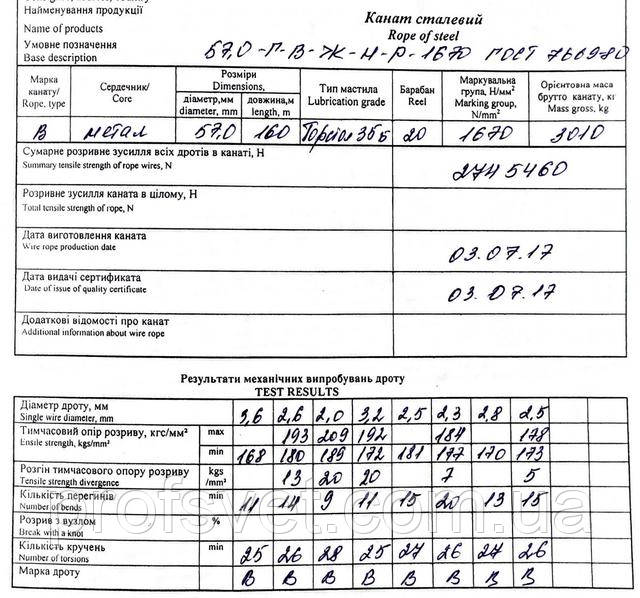 Найменування продукції
Name of products
Канат сталевий
Rope of steel
Умовне позначення
Base description
57,0-Г-В-Ж-Н-Р-1670 ГОСТ 7669-80
Марка канату/ Rope, type
Сердечник/ Core
Розміри Dimensions,
діаметр,мм diameter, mm
довжина,м length, m
Тип мастила Lubrication grade
Барабан Reel
Маркувальна група, Н/мм² Marking group, N/mm²
Орієнтовна маса брутто канату, кг Mass gross, kg
В метал 57,0 160 Торсіол 35Б 20 1670 3010
Сумарне розривне зусилля всіх дротів в канаті, Н
Summary tensile strength of rope wires, N
2745460
Розривне зусилля каната в цілому, Н
Total tensile strength of rope, N
Дата виготовлення каната
Wire rope production date
03.07.17
Дата видачі сертификата
Date of issue of quality certificate
03.07.17
Додаткові відомості про канат
Additional information about wire rope
Результати механічних випробувань дроту
TEST RESULTS
Діаметр дроту, мм
Single wire diameter, mm
3,6 2,6 2,0 3,2 2,5 2,3 2,8 2,5
Тимчасовий опір розриву, кгс/мм²
Ensile strength, kgs/mm²
max 193 209 192 184 178
min 168 180 189 172 181 177 170 173
Розгін тимчасового опору розриву
Tensile strength divergence
kgs /mm² 13 20 20 7 5
Кількість перегинів
Number of bends
min 11 14 9 11 15 20 13 15
Розрив з вузлом
Break with a knot
%
Кількість кручень
Number of torsions
min 25 26 28 25 27 26 27 26
Марка дроту
В В В В В В В В
profsvet.com.ua